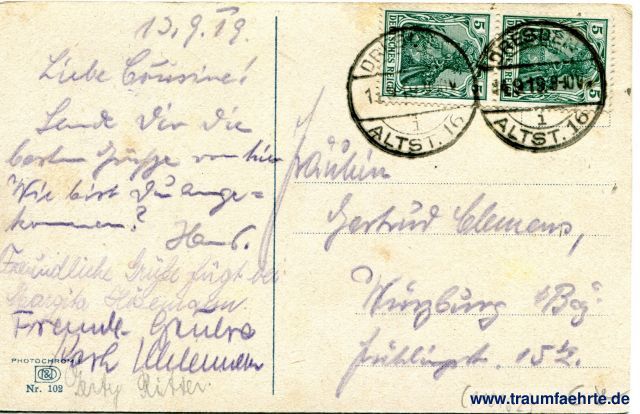 13.9.19.
Liebe Cousine!
Sende Dir die
besten Grüsse von hier
Wie bist Du ange-
kommen?
Hans.
Freundliche Grüße fügt bei
Margita
Freundl. Grüße
Karl
Ritter.
PHOTOCHROMIE
Nr. 102
5 DEUTSCHES REICH 5
5 DEUTSCHES REICH 5
DRESDEN
ALTST. 16
i
DRESDEN
9.19. 9-10V.
ALTST. 16
i
Fräulein
Gertrud Clemens,
Würzburg Bay.
15½.
www.traumfaehrte.de